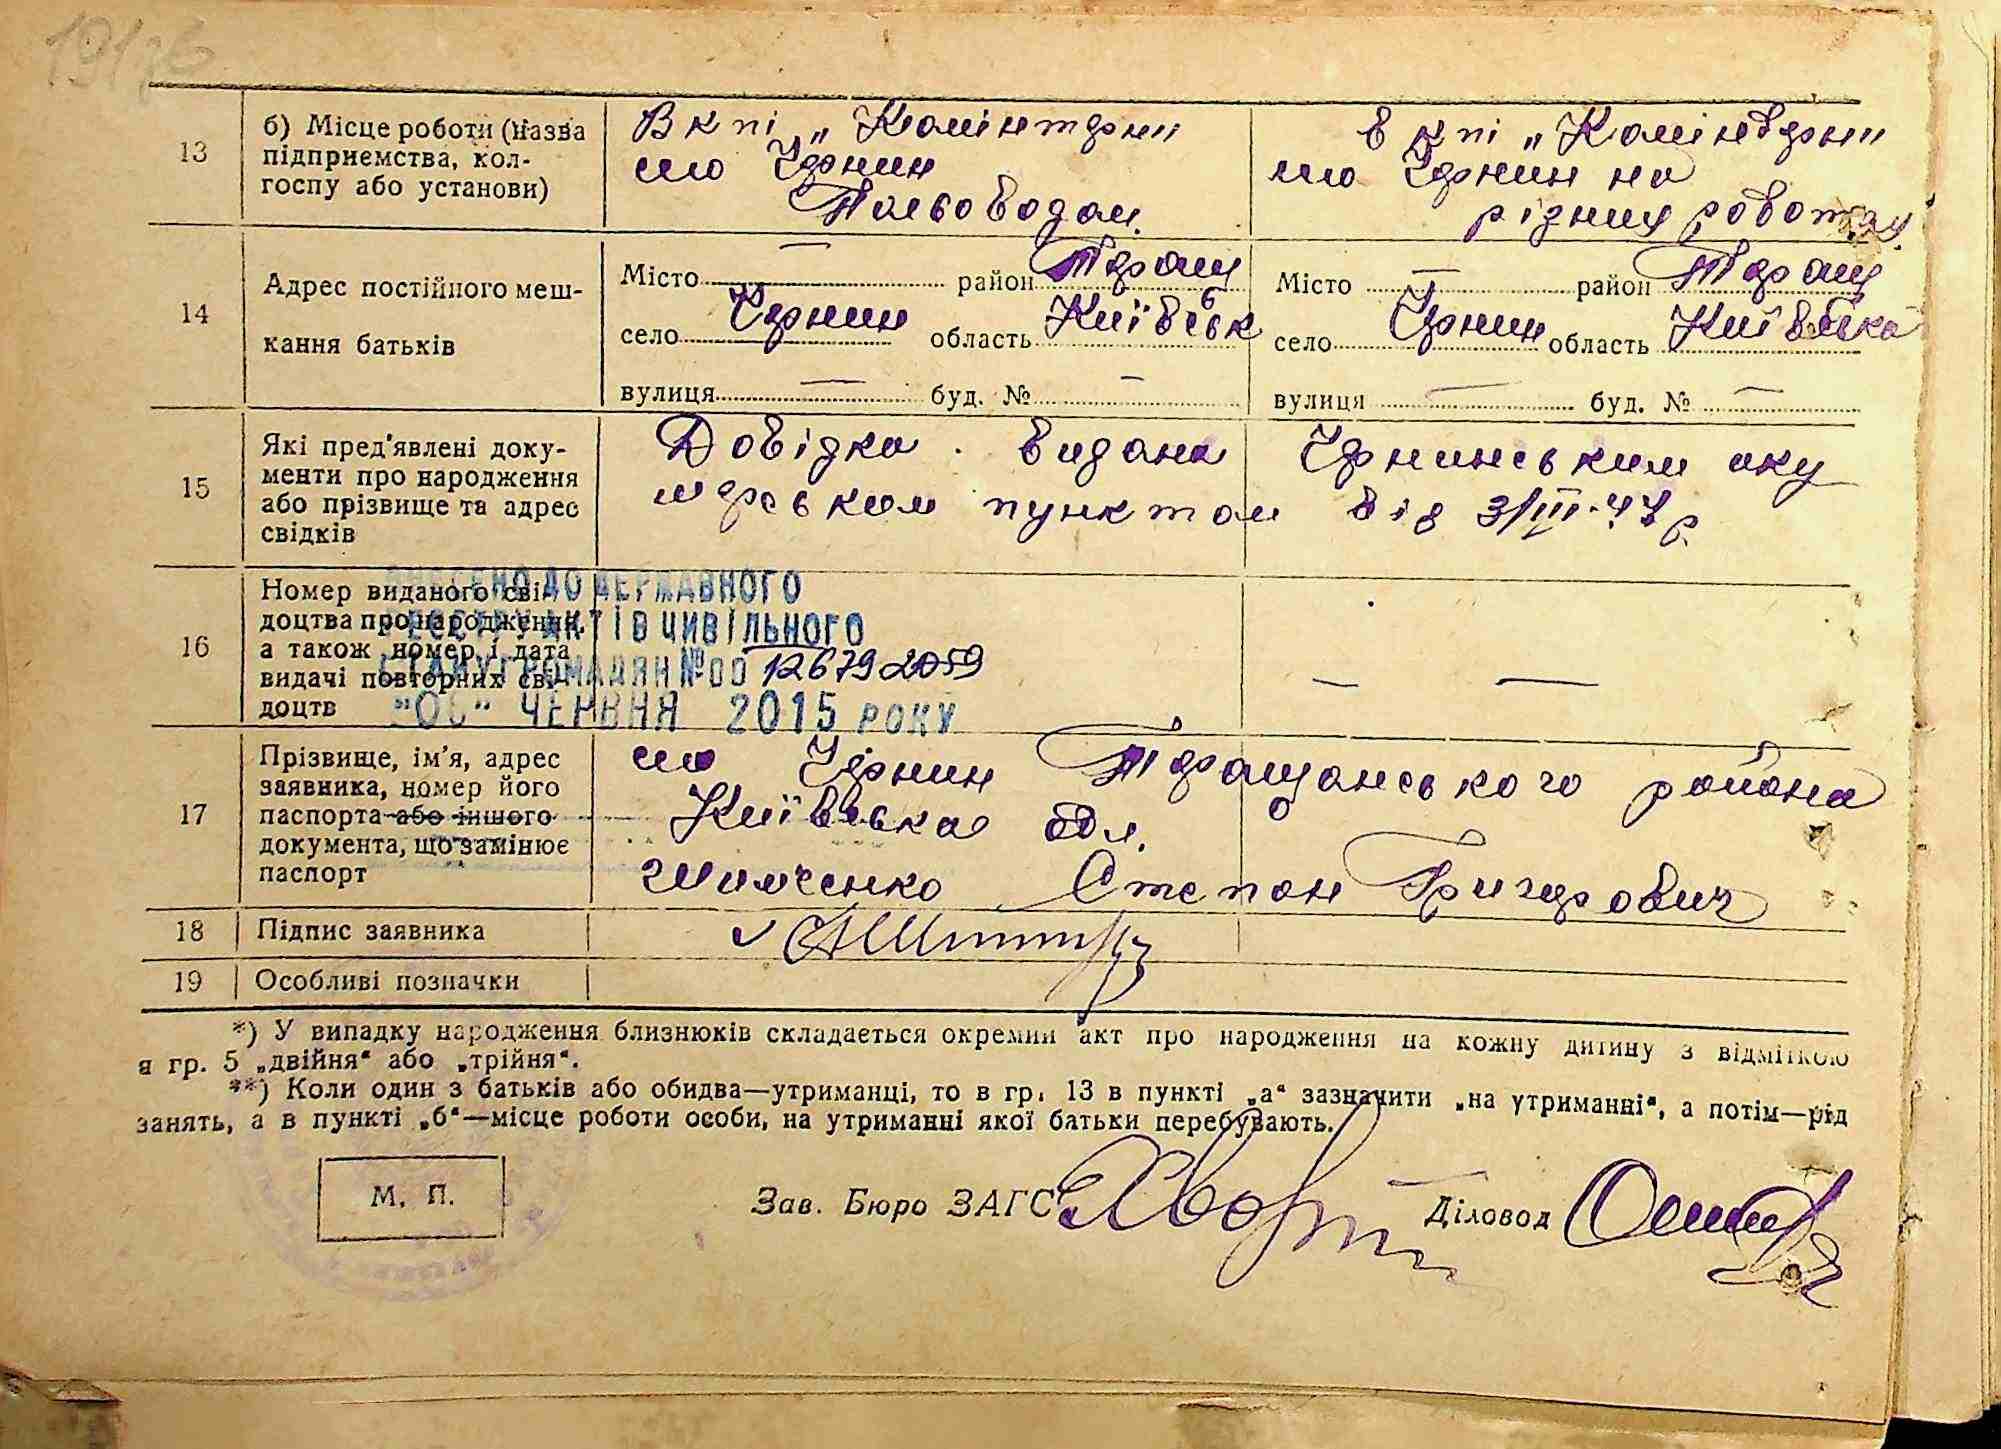 13
б) Місце роботи (назва
підприємства, кол-
госпу або установи)
В к пі „Комінтерн"
село Чернин
Польоводом.
в к пі „Комінтерн"
село Чернин на
різних роботах.
14
Адрес постійного меш-
кання батьків
Місто — район Тەращ
село Чернин область Київськ
вулиця — буд. № —
Місто — район Тараш
село Чернин область Київська
вулиця — буд. № —
15
Які пред'явлені доку-
менти про народження
або прізвище та адрес
свідків
Довідка. видана Чернинським аку
шерським пунктом від 3/III-47 р.
16
Номер виданого сві-
доцтва про народження,
а також номер і дата
видачі повторних сві-
доцтв
ВНЕСЕНО ДО ДЕРЖАВНОГО
РЕЄСТРУ АКТІВ ЦИВІЛЬНОГО
СТАНУ ГРОМАДЯН №00 126792059
ЧЕРВНЯ 2015 РОКУ
— —
17
Прізвище, ім'я, адрес
заявника, номер його
паспорта або іншого
документа, що замінює
паспорт
село Чернин Таращанського района
Київська обл.
Степан Григорович
18
Підпис заявника
19
Особливі позначки
*) У випадку народження близнюків складається окремий акт про народження на кожну дитину з відміткою
в гр. 5 „двійня" або „трійня".
**) Коли один з батьків або обидва—утриманці, то в гр. 13 в пункті „а" зазначити „на утриманні", а потім—рід
занять, а в пункті „б"—місце роботи особи, на утриманні якої батьки перебувають.
М. П.
Зав. Бюро ЗАГС
Діловод